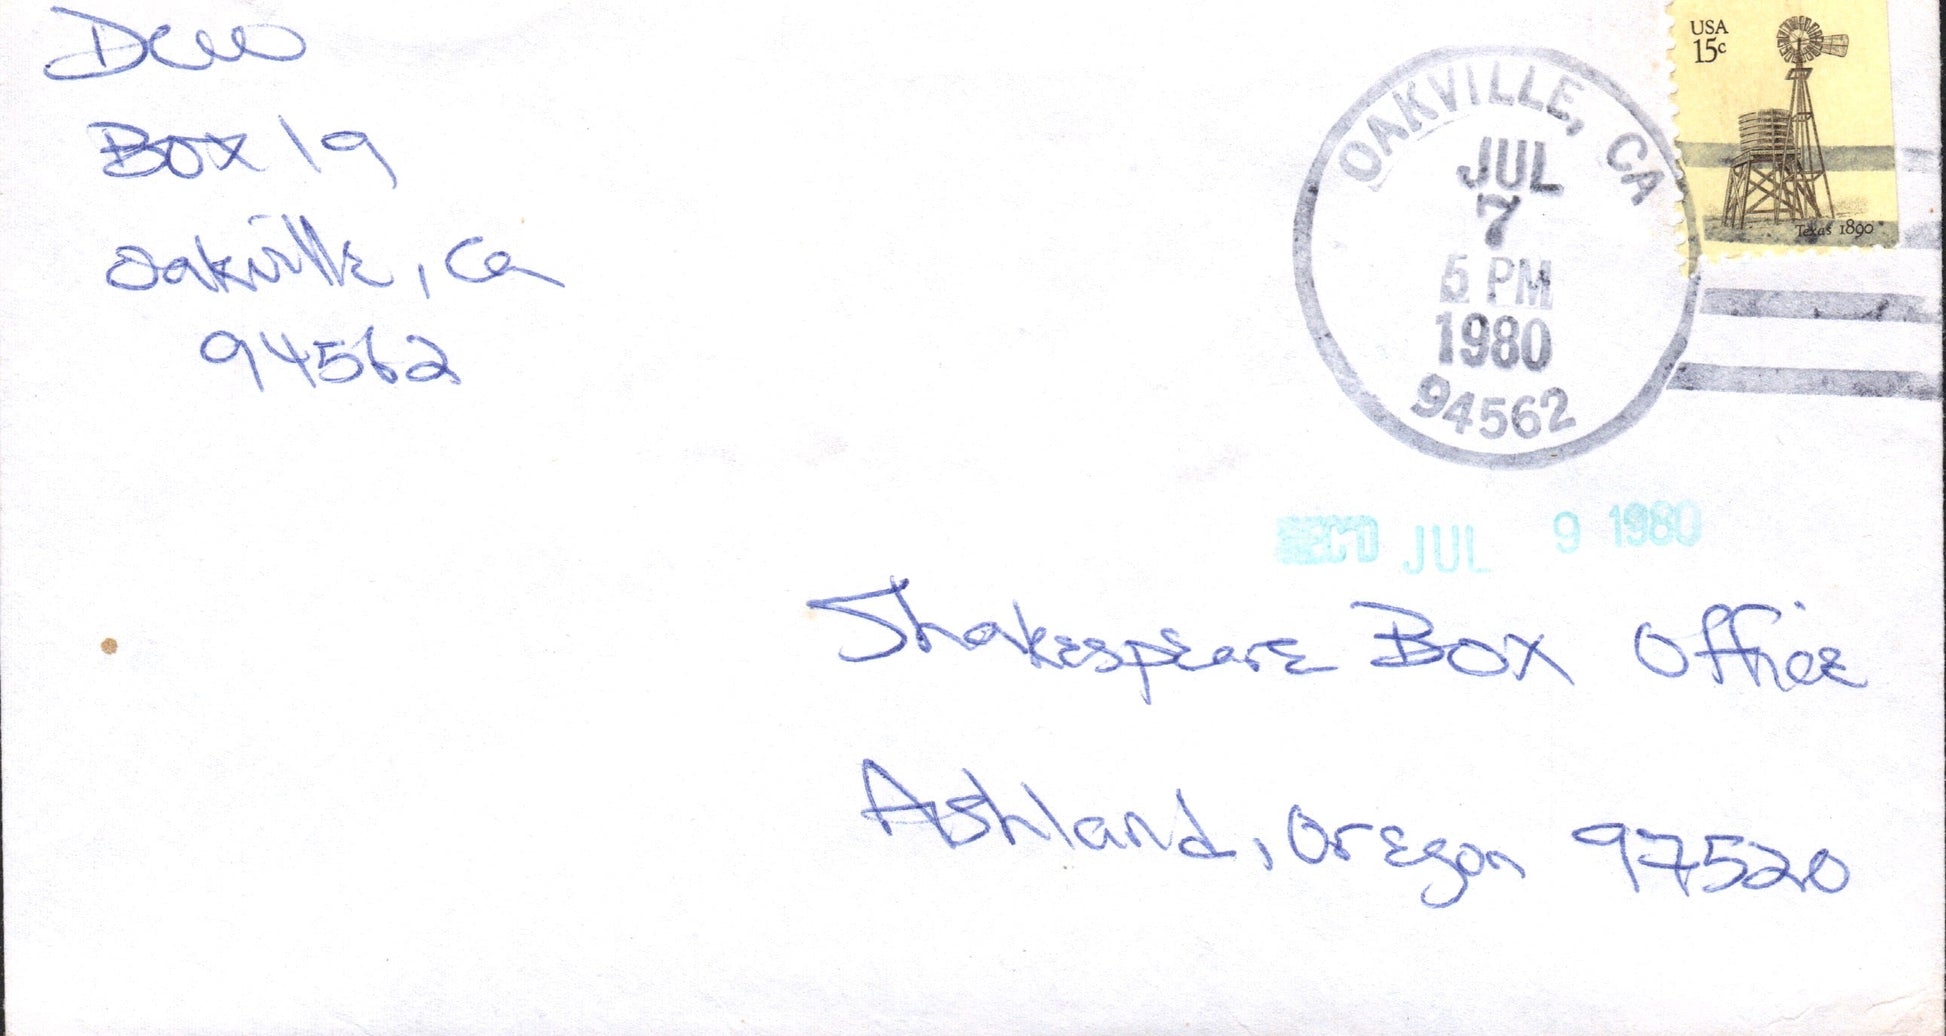 Box 19
Oakville, Ca
94562
USA
15c
Texas 1890
OAKVILLE, CA
JUL
7
5 PM
1980
94562
REC'D JUL 9 1980
Shakespeare Box Office
Ashland, Oregon 97520